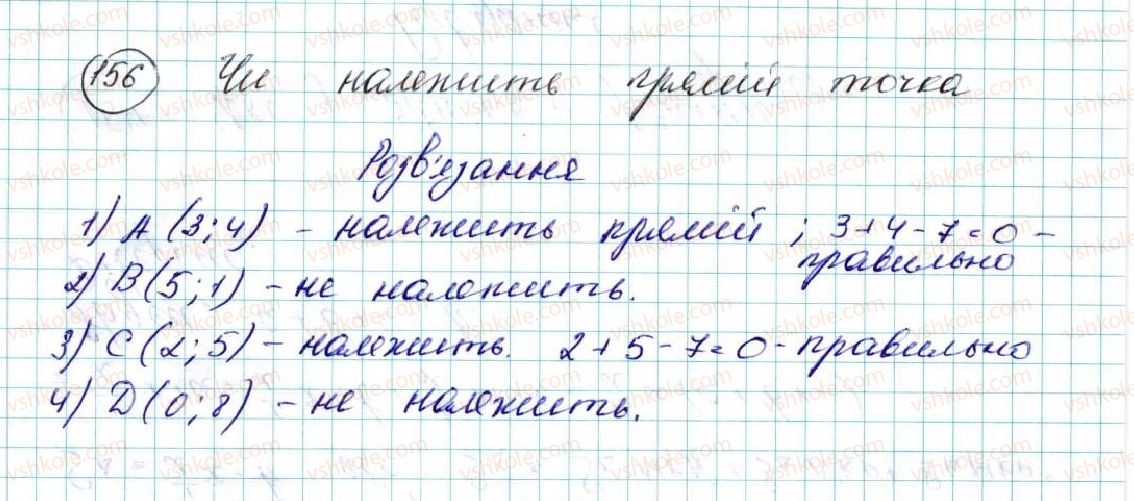 156 Чи належить прямій точка
Розв'язання
1) А (3; 4) - належить прямій; 3+4-7=0 -
правильно
2) В(5; 1) - не належить.
3) С(2; 5) - належить. 2+5-7=0 - правильно
4) D(0; 8) - не належить.